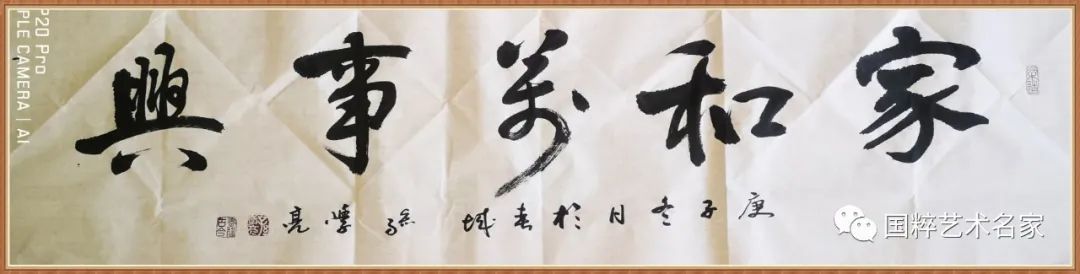 家和萬事興
庚子冬月於春城孫學亮
P20 Pro
PLE CAMERA | AI
国粹艺术名家